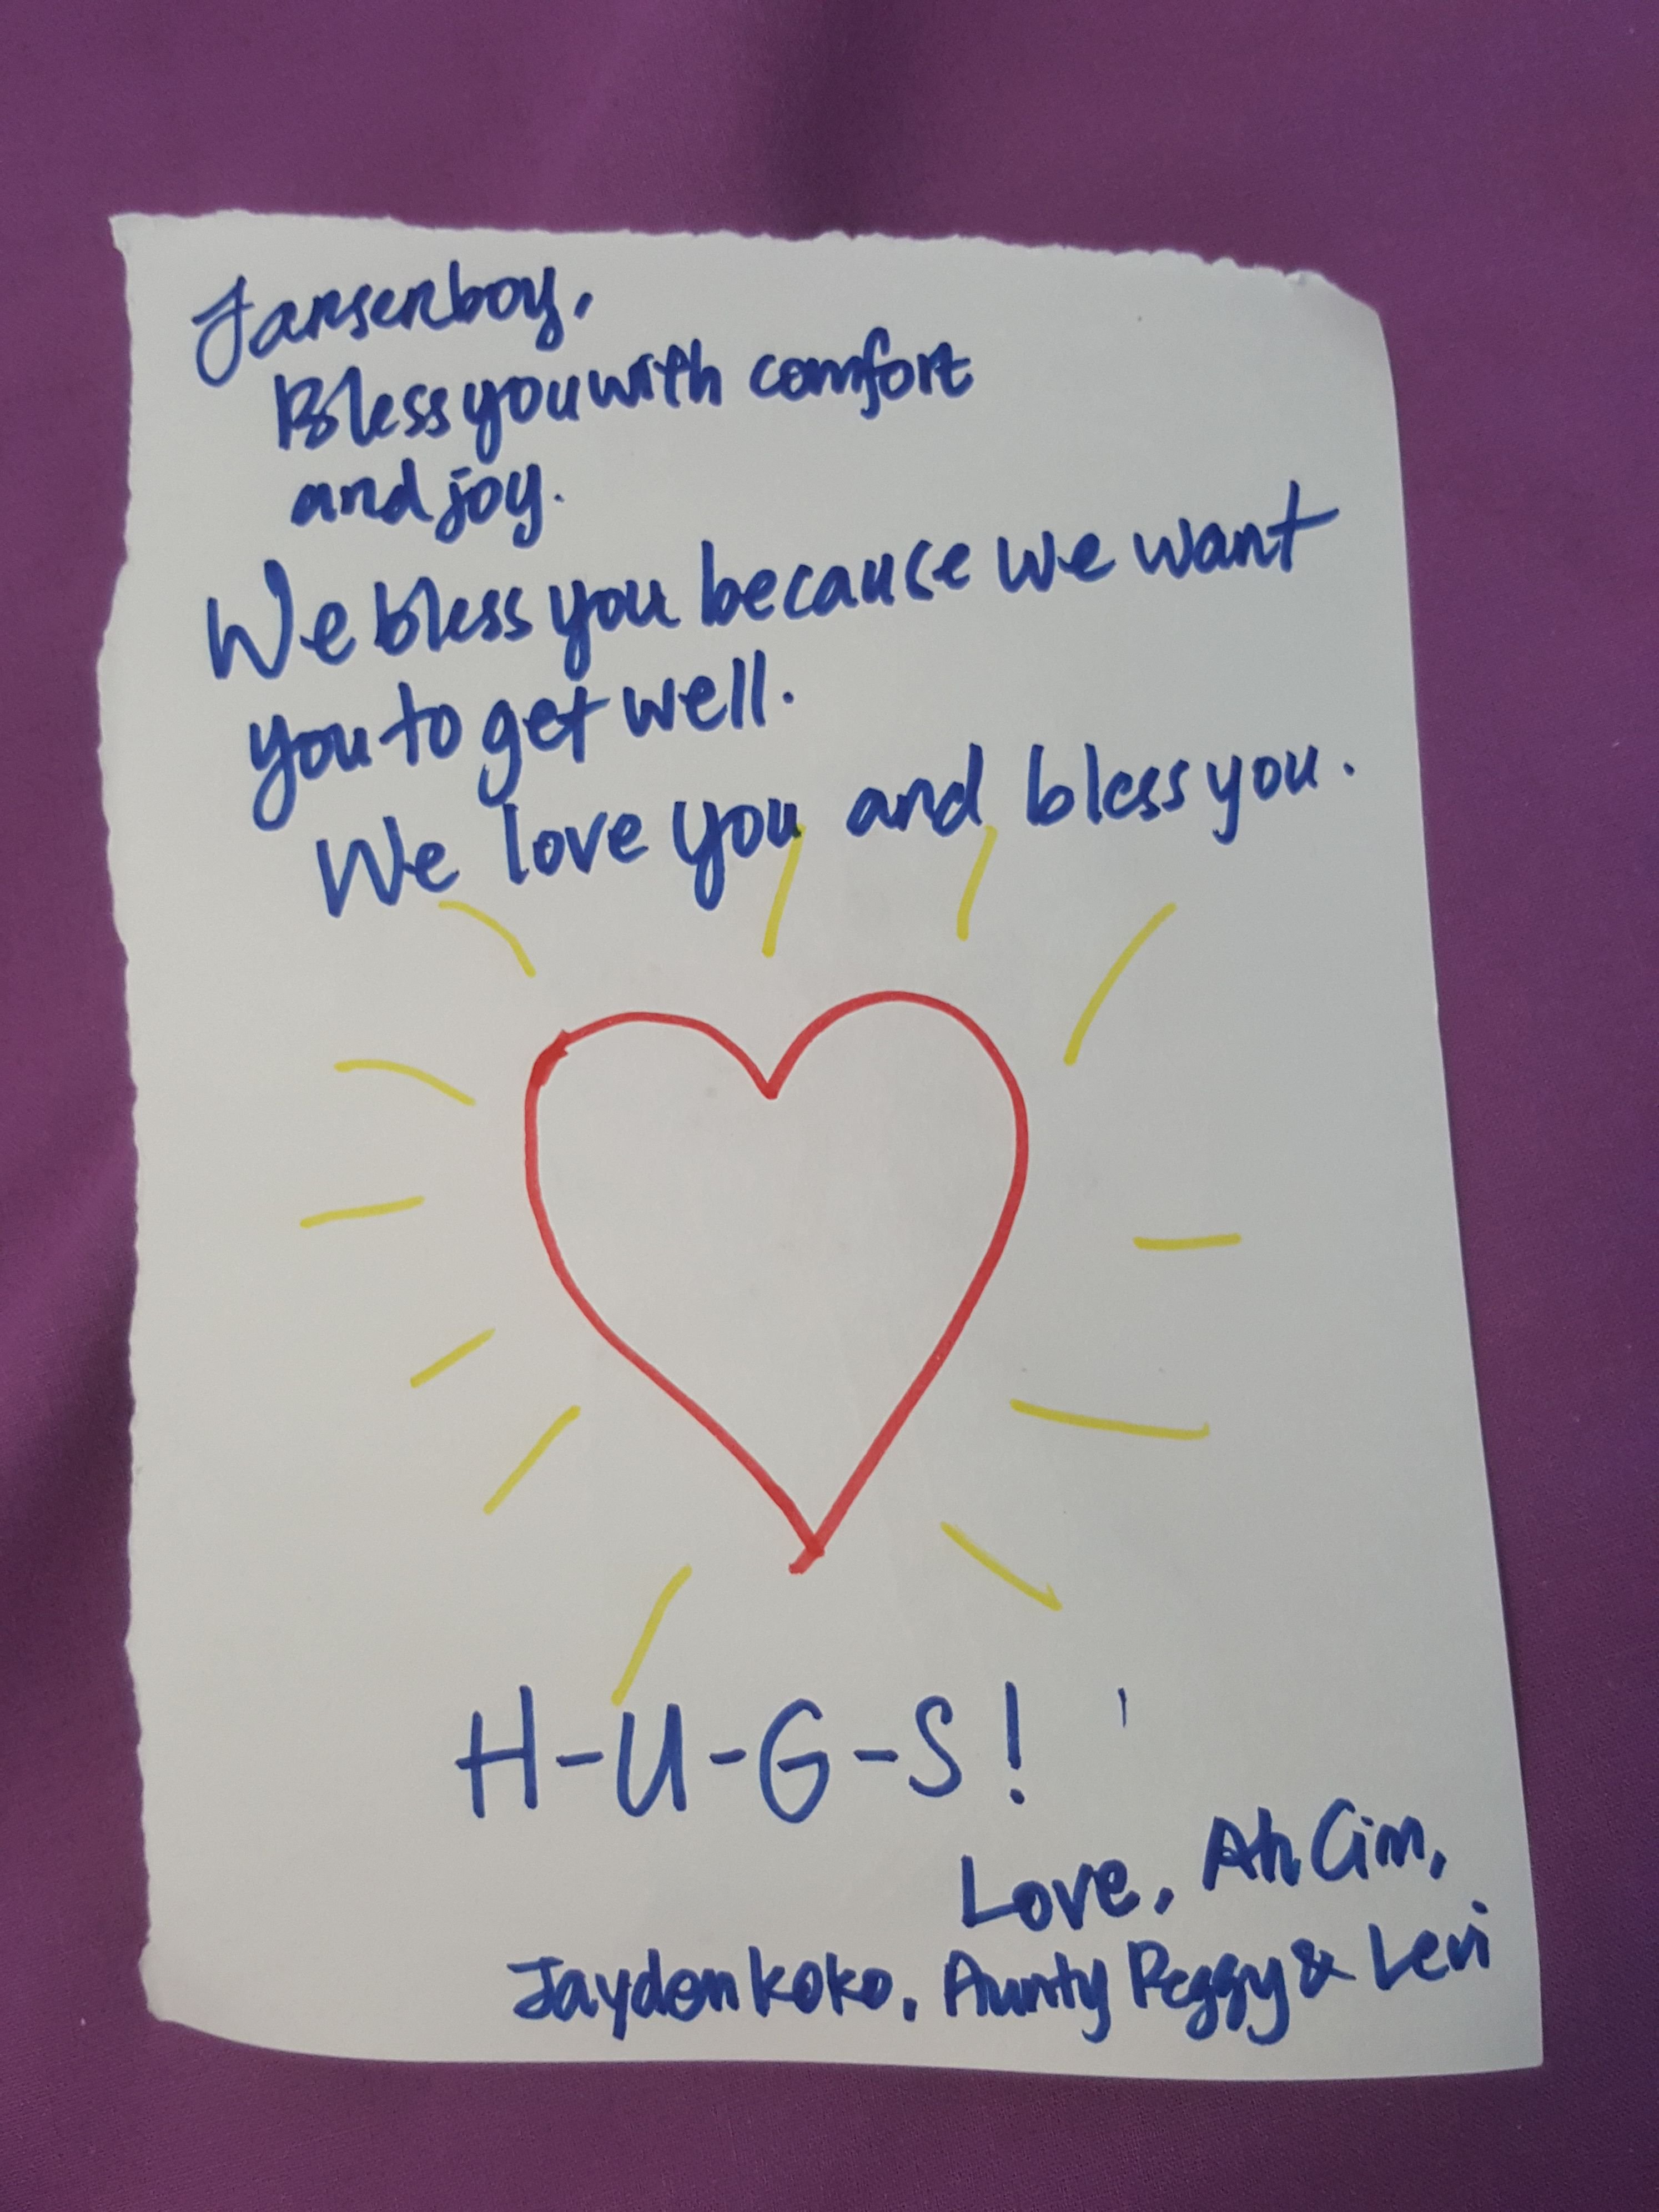 Jansenboy,
Bless you with comfort
and joy.
We bless you because we want
you to get well.
We love you and bless you.
H-U-G-S!
Love, Ah Cim,
Jayden koko, Aunty Peggy & Levi